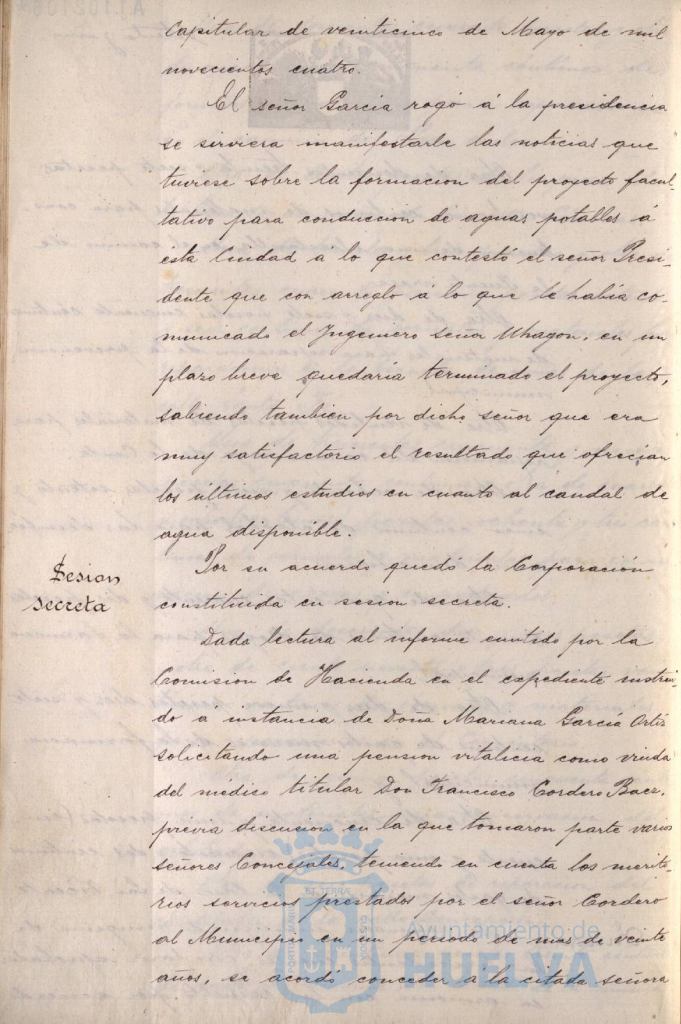 Capitular de veinticinco de Mayo de mil
novecientos cuatro.
El señor García rogó á la presidencia
se sirviera manifestarle las noticias que
tuviese sobre la formacion del proyecto facul-
tativo para conduccion de aguas potables á
esta Ciudad á lo que contestó el señor Presi-
dente que con arreglo á lo que le había co-
municado el Ingeniero señor Uhagon, en un
plazo breve quedaría terminado el proyecto,
sabiendo tambien por dicho señor que era
muy satisfactorio el resultado que ofrecian
los últimos estudios en cuanto al caudal de
agua disponible.
Sesion
secreta
Por su acuerdo quedó la Corporación
constituida en sesion secreta.
Dada lectura al informe emitido por la
Comision de Hacienda en el expediente instrui-
do á instancia de Doña Mariana García Ortiz
solicitando una pension vitalicia como viuda
del médico titular Don Francisco Cordero Baez,
previa discusion en la que tomaron parte varios
señores Concejales, teniendo en cuenta los merito-
rios servicios prestados por el señor Cordero
al Municipio en un periodo de mas de veinte
años, se acordó conceder á la citada señora
Ayuntamiento de
HUELVA